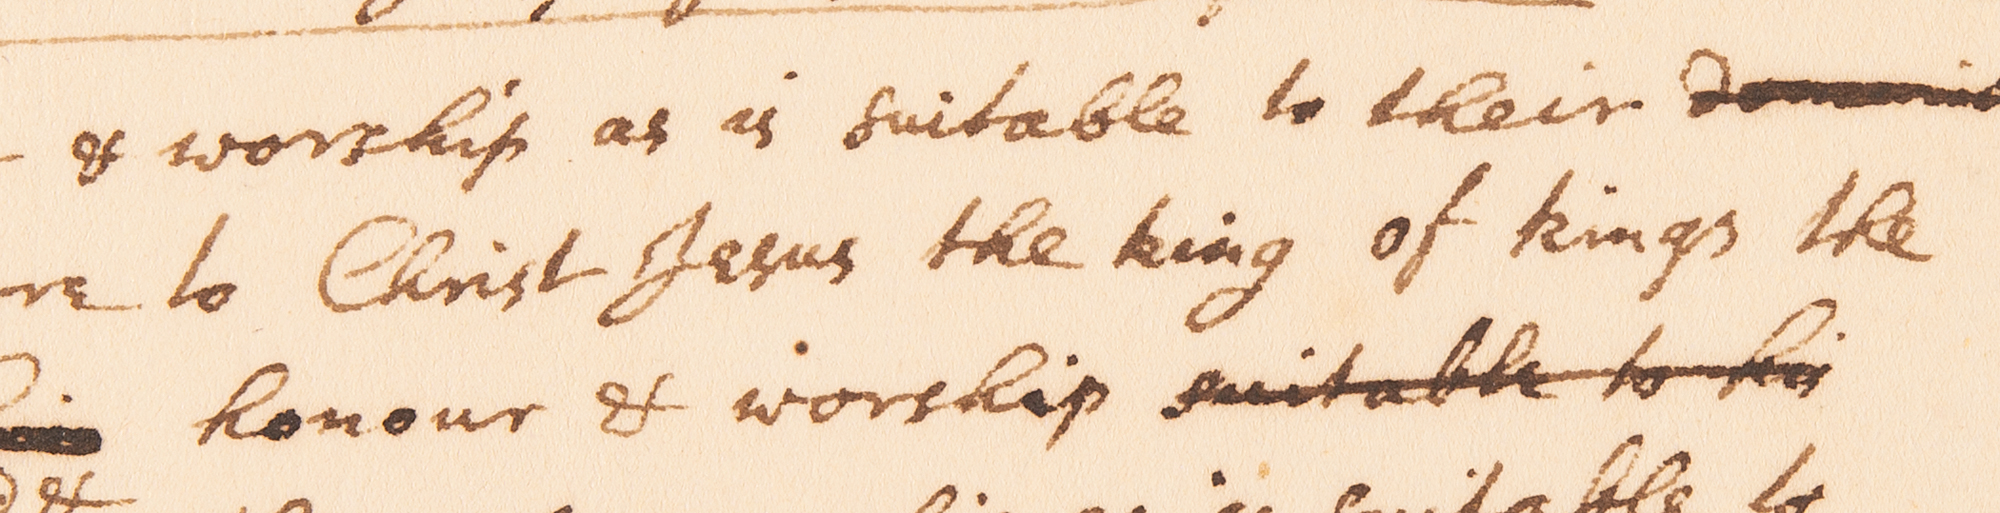 & worship as is suitable to their
to Christ Jesus the king of kings the
honour & worship suitable to his
& is suitable to